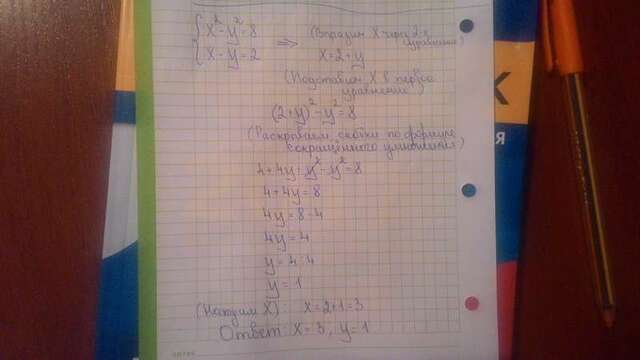 x² - y² = 8 => (Выразим X через 2-е уравнение)
x - y = 2 x = 2 + y
(Подставим X в первое уравнение)
(2+y)² - y² = 8
(Раскрываем скобки по формуле сокращённого умножения)
4 + 4y + y² - y² = 8
4 + 4y = 8
4y = 8 - 4
4y = 4
y = 4 : 4
y = 1
(Находим X): x = 2+1 = 3
Ответ: x = 3, y = 1
К
Я